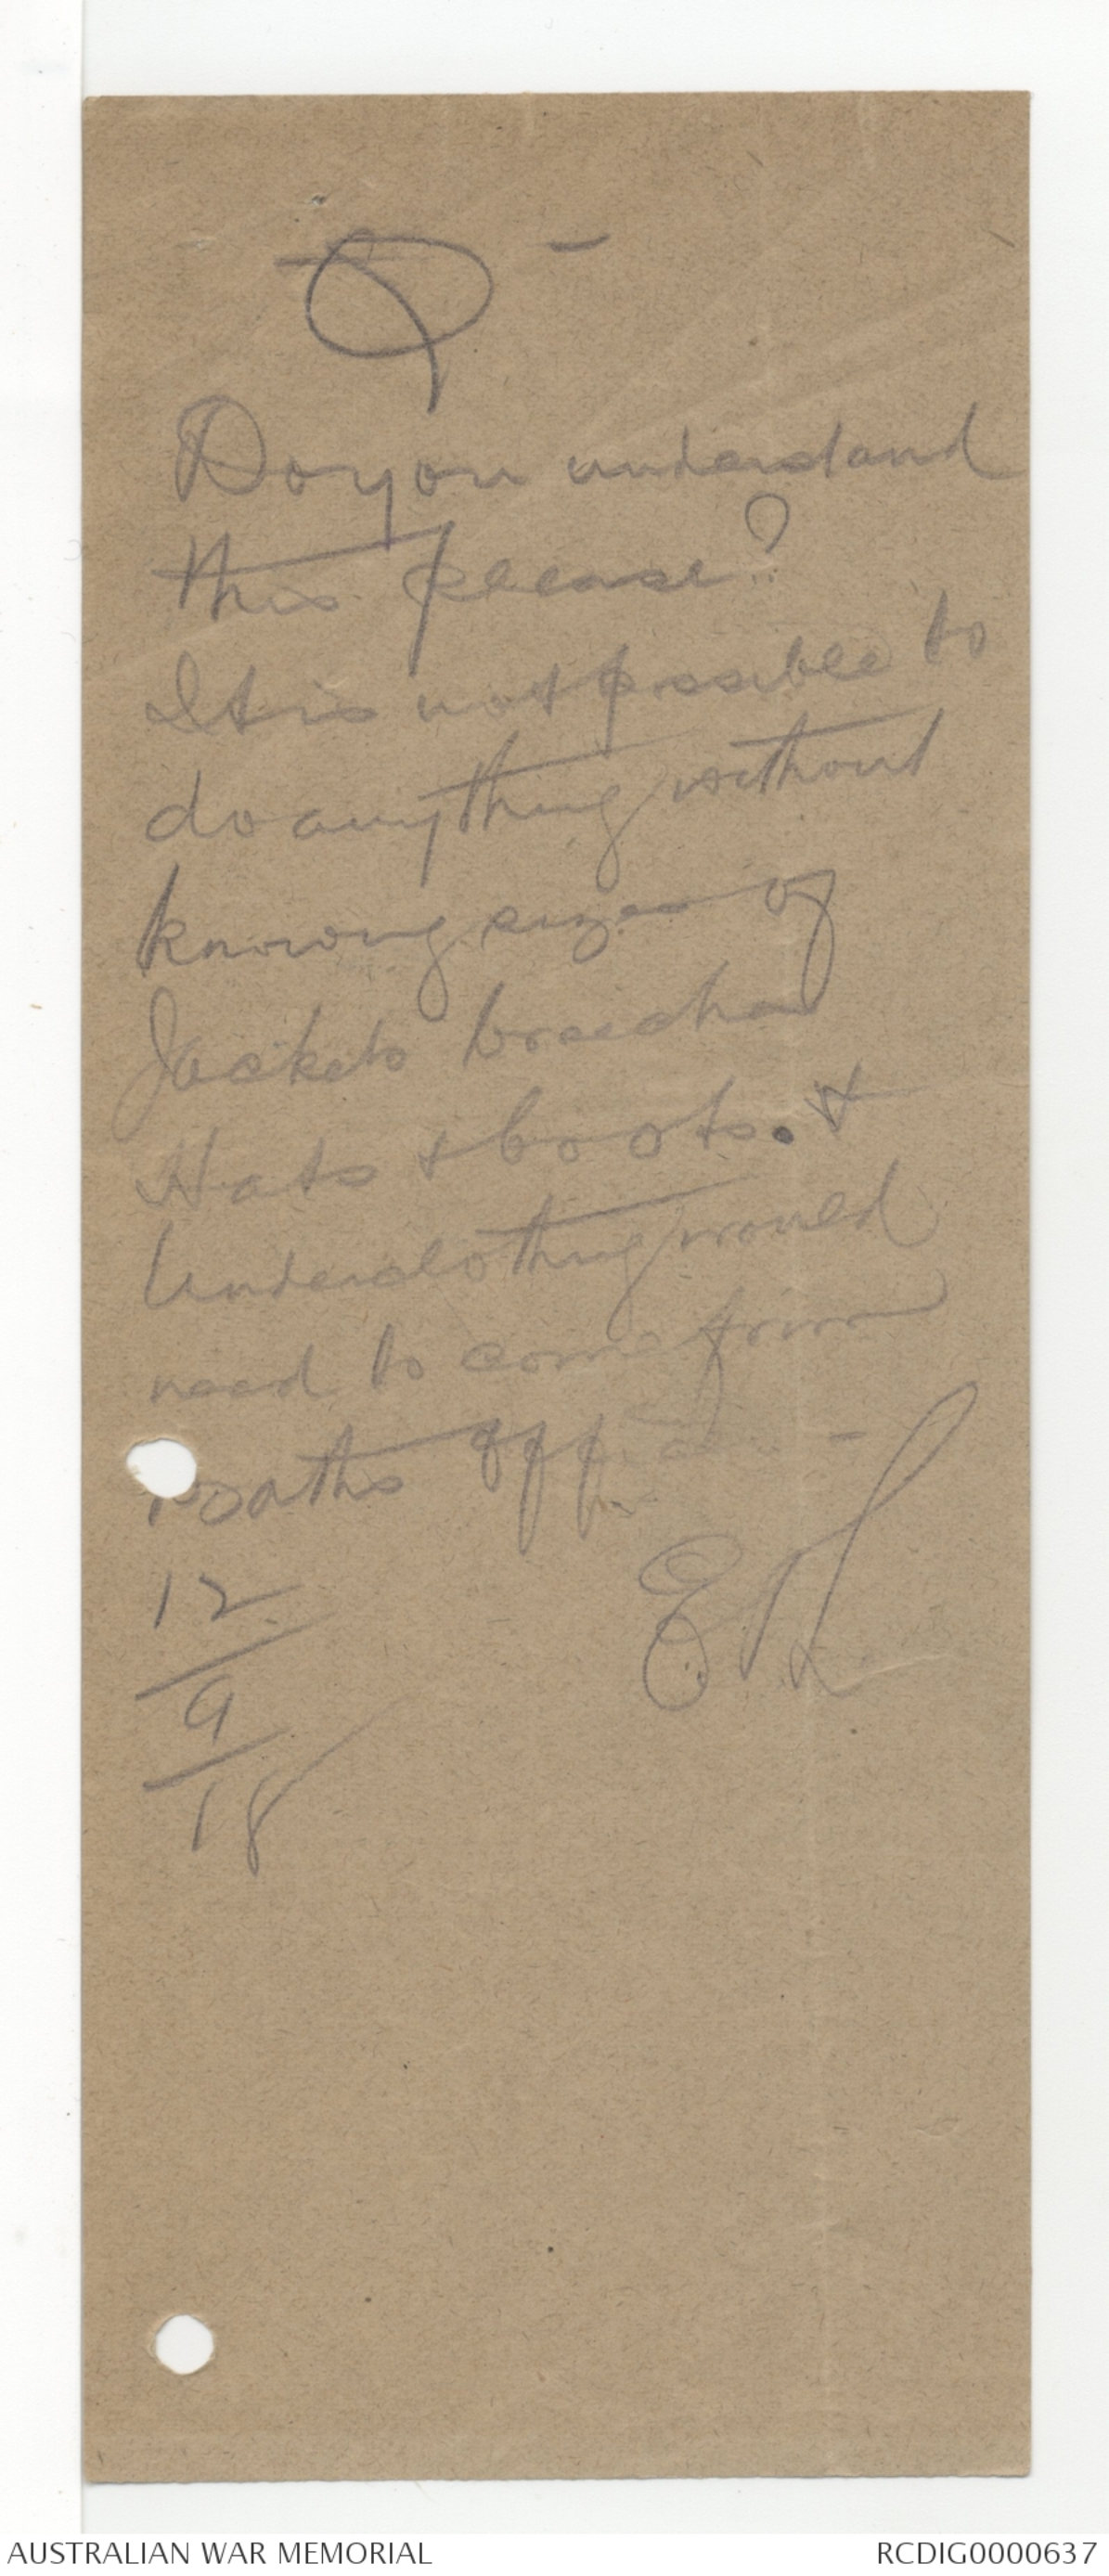 Q –
Do you understand
this please?
It is not possible to
do anything without
knowing sizes of
Jackets breeches
Hats & boots. &
Underclothing would
need to come from
Baths Off
12
9
18
AUSTRALIAN WAR MEMORIAL
RCDIG0000637